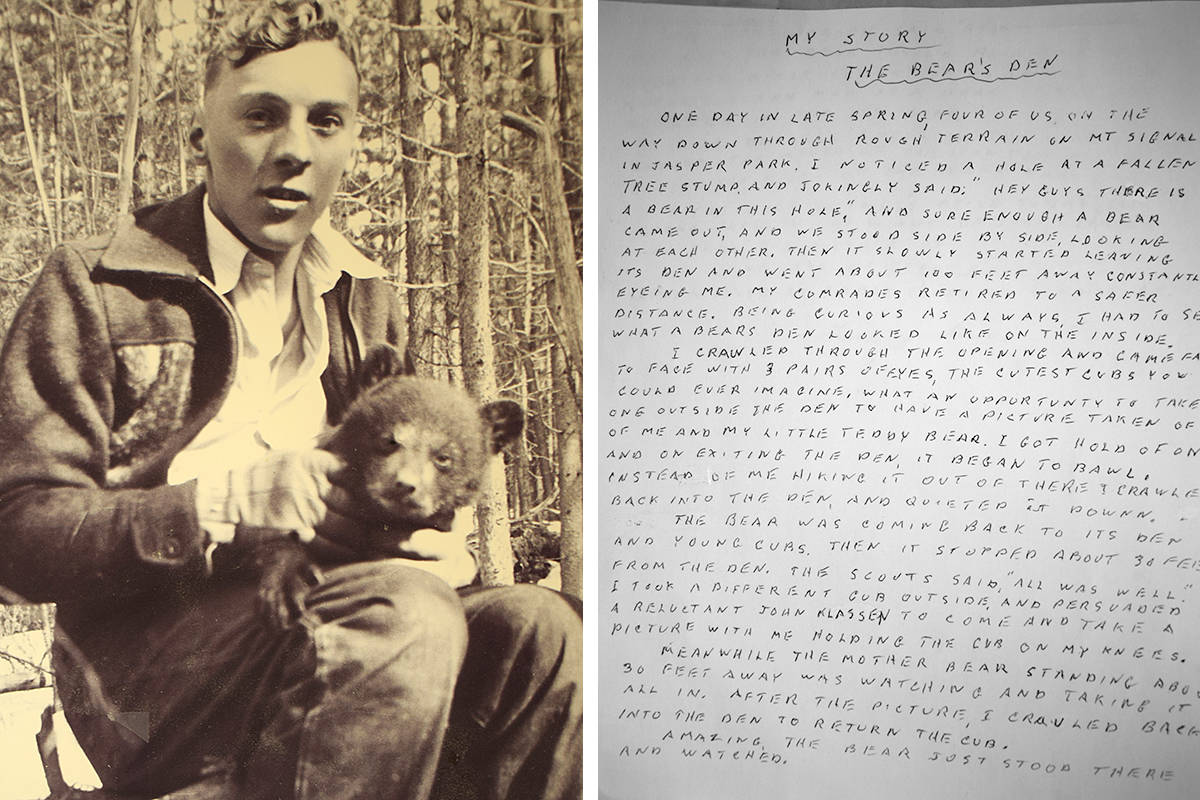 MY STORY
THE BEAR'S DEN
ONE DAY IN LATE SPRING, FOUR OF US, ON THE
WAY DOWN THROUGH ROUGH TERRAIN ON MT SIGNAL
IN JASPER PARK. I NOTICED A HOLE AT A FALLEN
TREE STUMP, AND JOKINGLY SAID: "HEY GUYS THERE IS
A BEAR IN THIS HOLE," AND SURE ENOUGH A BEAR
CAME OUT, AND WE STOOD SIDE BY SIDE, LOOKING
AT EACH OTHER. THEN IT SLOWLY STARTED LEAVING
ITS DEN AND WENT ABOUT 100 FEET AWAY CONSTANTL
EYEING ME. MY COMRADES RETIRED TO A SAFER
DISTANCE. BEING CURIOUS AS ALWAYS, I HAD TO SE
WHAT A BEARS DEN LOOKED LIKE ON THE INSIDE.
I CRAWLED THROUGH THE OPENING AND CAME FA
TO FACE WITH 3 PAIRS OF EYES, THE CUTEST CUBS YOU
COULD EVER IMAGINE, WHAT AN OPPORTUNTY TO TAKE
ONE OUTSIDE THE DEN TO HAVE A PICTURE TAKEN OF
OF ME AND MY LITTLE TEDDY BEAR. I GOT HOLD OF ON
AND ON EXITING THE DEN, IT BEGAN TO BAWL.
INSTEAD OF ME HIKING IT OUT OF THERE I CRAWLE
BACK INTO THE DEN, AND QUIETED IT DOWNN.
THE BEAR WAS COMING BACK TO ITS DEN
AND YOUNG CUBS. THEN IT STOPPED ABOUT 30 FEE
FROM THE DEN. THE SCOUTS SAID, "ALL WAS WELL."
I TOOK A DIFFERENT CUB OUTSIDE, AND PERSUADED
A RELUCTANT JOHN KLASSEN TO COME AND TAKE A
PICTURE WITH ME HOLDING THE CUB ON MY KNEES.
MEANWHILE THE MOTHER BEAR STANDING ABOU
30 FEET AWAY WAS WATCHING AND TAKING IT
ALL IN. AFTER THE PICTURE, I CRAWLED BACK
INTO THE DEN TO RETURN THE CUB.
AMAZING, THE BEAR JUST STOOD THERE
AND WATCHED.